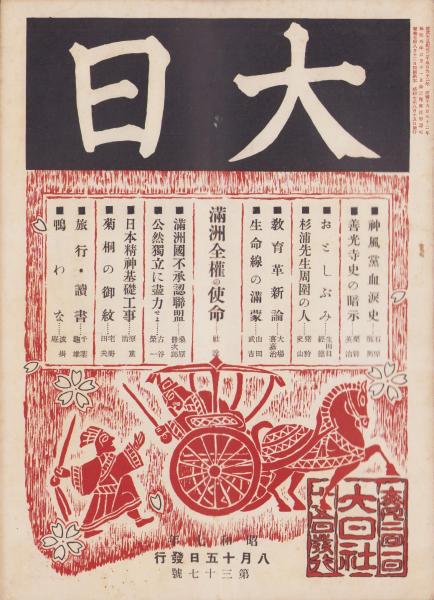 大日
■神風黨血涙史 石原
■善光寺史の暗示 栗野英治
■おとしぶみ 生田目經德
■杉浦先生周圍の人 猪狩史山
■教育革新論 大場喜嘉治
■生命線の滿蒙 山田武吉
滿洲全權の使命 社説
■滿洲國不承認聯盟
■公然獨立に盡力せよ 古谷榮一
■日本精神基礎工事 原
■菊桐の御紋
■旅行・讀書 千葉龜雄
■鴨わな
昭和七年
八月十五日發行
第三十七號
大日社